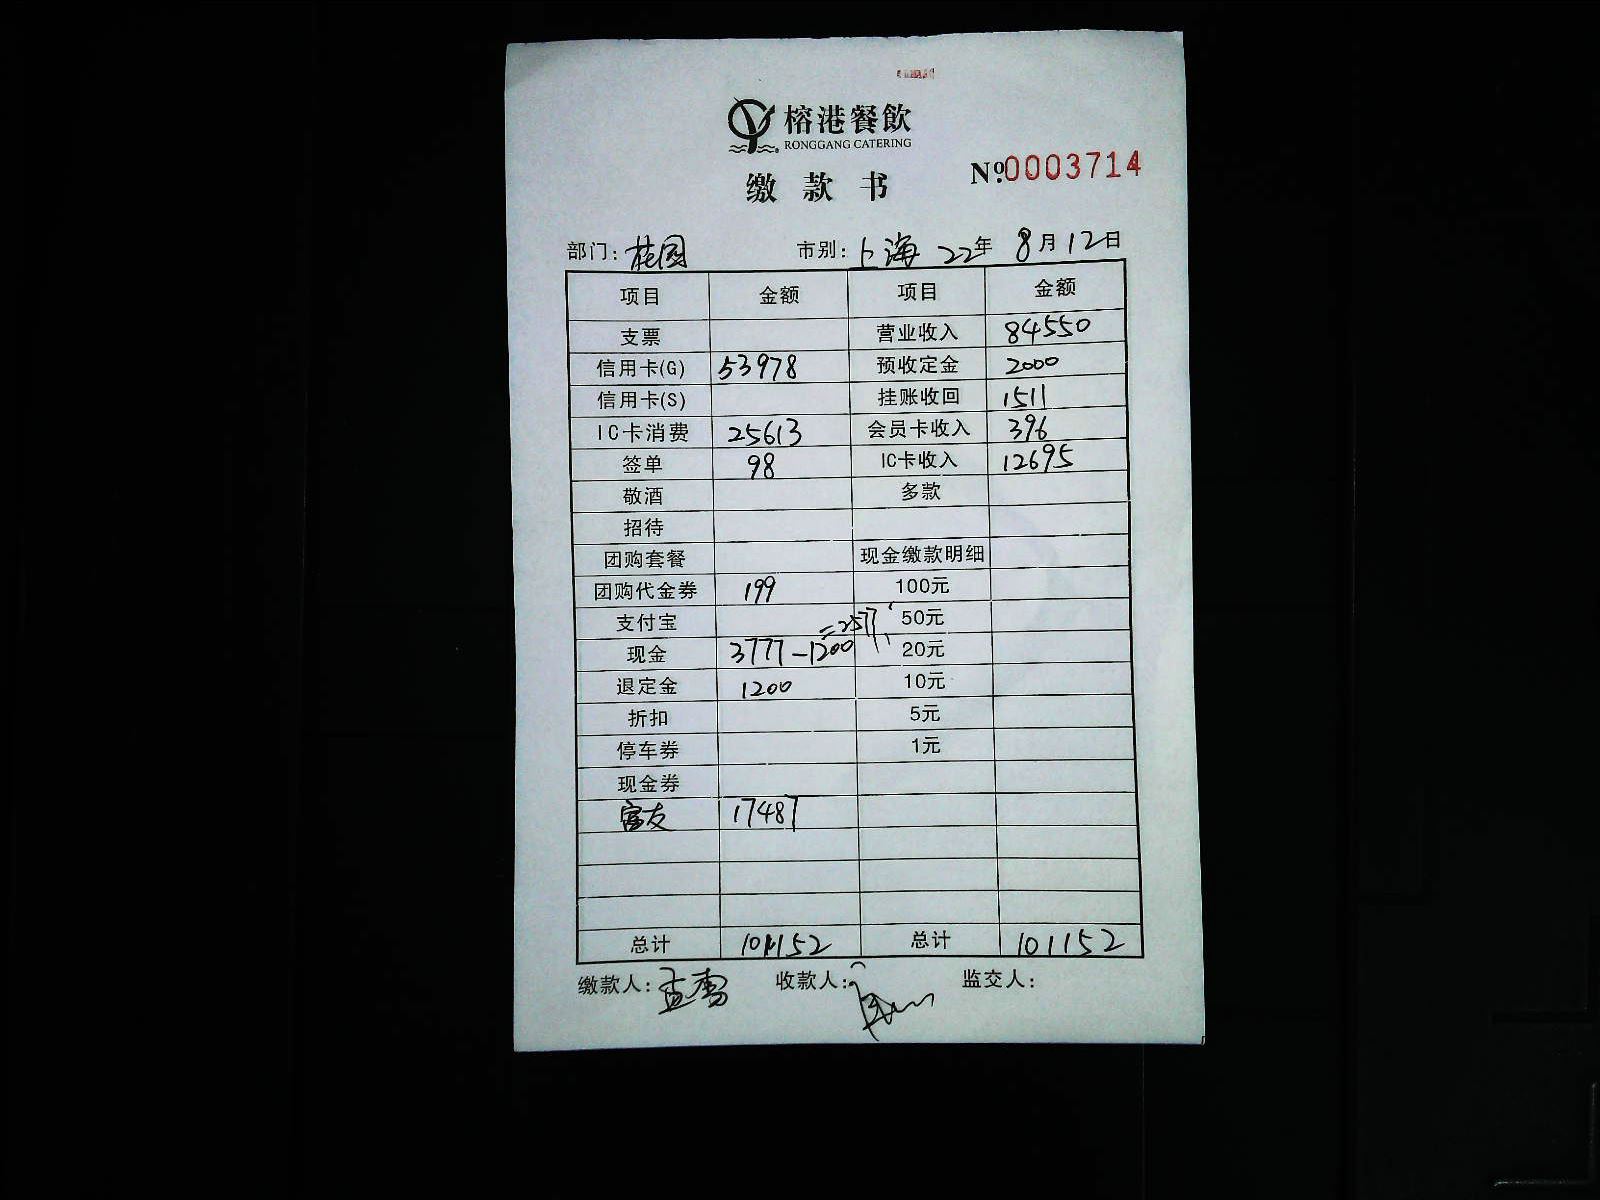 榕港餐飲
RONGGANG CATERING
缴款书
Nº.0003714
部门：桂园 市别：上海 22年 8月12日
项目 金额 项目 金额
支票 营业收入 84550
信用卡(G) 53978 预收定金 2000
信用卡(S) 挂账收回 1511
IC卡消费 25613 会员卡收入 396
签单 98 IC卡收入 12695
敬酒 多款
招待
团购套餐 现金缴款明细
团购代金券 199 100元
支付宝 =2577 50元
现金 3777-1200 20元
退定金 1200 10元
折扣 5元
停车券 1元
现金券
富友 17487
总计 101152 总计 101152
缴款人：孟 收款人： 监交人：